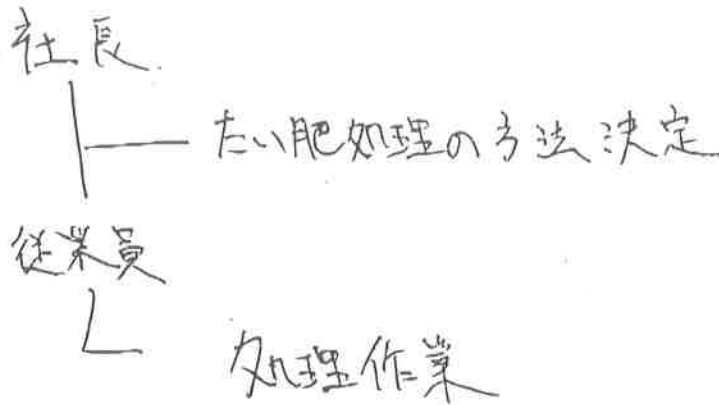 社長
たい肥処理の方法決定
従業員
処理作業